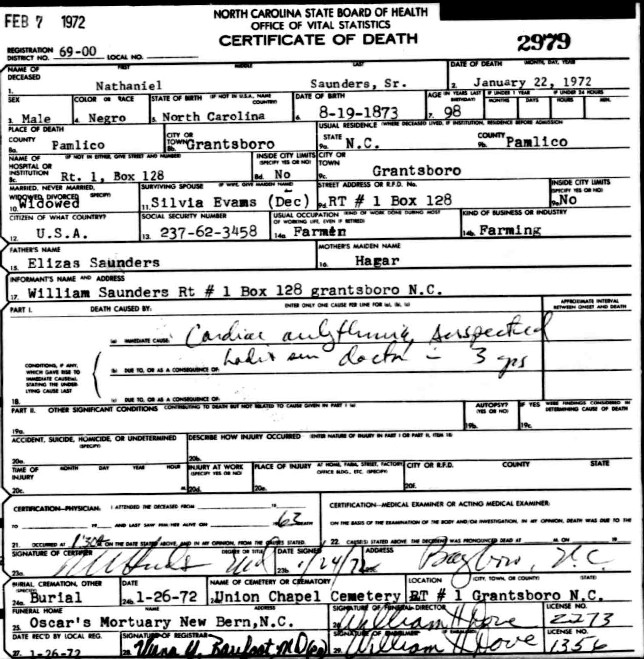 FEB 7 1972
NORTH CAROLINA STATE BOARD OF HEALTH
OFFICE OF VITAL STATISTICS
CERTIFICATE OF DEATH
2979
REGISTRATION DISTRICT NO. 69-00 LOCAL NO.
NAME OF DECEASED FIRST MIDDLE LAST DATE OF DEATH (MONTH, DAY, YEAR)
1. Nathaniel Saunders, Sr. 2. January 22, 1972
SEX COLOR OR RACE STATE OF BIRTH (IF NOT IN U.S.A., NAME COUNTRY) DATE OF BIRTH AGE (IN YEARS LAST BIRTHDAY) IF UNDER 1 YEAR MONTHS DAYS IF UNDER 24 HOURS HOURS MIN.
3. Male 4. Negro 5. North Carolina 6. 8-19-1873 7. 98
PLACE OF DEATH USUAL RESIDENCE (WHERE DECEASED LIVED, IF INSTITUTION, RESIDENCE BEFORE ADMISSION)
COUNTY CITY OR TOWN STATE COUNTY
8a. Pamlico 8b. Grantsboro 9a. N.C. 9b. Pamlico
NAME OF HOSPITAL OR INSTITUTION (IF NOT IN EITHER, GIVE STREET AND NUMBER) INSIDE CITY LIMITS (SPECIFY YES OR NO) CITY OR TOWN
8c. Rt. 1, Box 128 8d. No 9c. Grantsboro
MARRIED, NEVER MARRIED, WIDOWED, DIVORCED (SPECIFY) SURVIVING SPOUSE (IF WIFE, GIVE MAIDEN NAME) STREET ADDRESS OR R.F.D. No. INSIDE CITY LIMITS (SPECIFY YES OR NO)
10. Widowed 11. Silvia Evams (Dec) 9d. RT # 1 Box 128 9e. No
CITIZEN OF WHAT COUNTRY? SOCIAL SECURITY NUMBER USUAL OCCUPATION (KIND OF WORK DONE DURING MOST OF WORKING LIFE, EVEN IF RETIRED) KIND OF BUSINESS OR INDUSTRY
12. U.S.A. 13. 237-62-3458 14a. Farmin 14b. Farming
FATHER'S NAME MOTHER'S MAIDEN NAME
15. Elizas Saunders 16. Hagar
INFORMANT'S NAME AND ADDRESS
17. William Saunders Rt # 1 Box 128 grantsboro N.C.
PART I. DEATH CAUSED BY: ENTER ONLY ONE CAUSE PER LINE FOR (a), (b), (c) APPROXIMATE INTERVAL BETWEEN ONSET AND DEATH
(a) IMMEDIATE CAUSE: Cardiac suspected
CONDITIONS, IF ANY, WHICH GAVE RISE TO IMMEDIATE CAUSE(A), STATING THE UNDERLYING CAUSE LAST
(b) DUE TO, OR AS A CONSEQUENCE OF: doctor 3 yrs
18. (c) DUE TO, OR AS A CONSEQUENCE OF:
PART II. OTHER SIGNIFICANT CONDITIONS CONTRIBUTING TO DEATH BUT NOT RELATED TO CAUSE GIVEN IN PART I (a) AUTOPSY? (YES OR NO) IF YES WERE FINDINGS CONSIDERED IN DETERMINING CAUSE OF DEATH
19a. 19b. 19c.
ACCIDENT, SUICIDE, HOMICIDE, OR UNDETERMINED (SPECIFY) DESCRIBE HOW INJURY OCCURRED (ENTER NATURE OF INJURY IN PART I OR PART II, ITEM 18)
20a. 20b.
TIME OF INJURY MONTH DAY YEAR HOUR INJURY AT WORK (SPECIFY YES OR NO) PLACE OF INJURY AT HOME, FARM, STREET, FACTORY OFFICE BLDG., ETC. (SPECIFY) CITY OR R.F.D. COUNTY STATE
20c. M. 20d. 20e. 20f.
CERTIFICATION-PHYSICIAN: I ATTENDED THE DECEASED FROM
19 TO 19 AND LAST SAW HIM/HER ALIVE ON 63
21. OCCURRED AT M. ON THE DATE STATED ABOVE, AND IN MY OPINION, FROM THE CAUSES STATED
CERTIFICATION-MEDICAL EXAMINER OR ACTING MEDICAL EXAMINER:
ON THE BASIS OF THE EXAMINATION OF THE BODY AND/OR INVESTIGATION, IN MY OPINION, DEATH WAS DUE TO THE
22. CAUSE(S) STATED ABOVE. THE DECEDENT WAS PRONOUNCED DEAD AT M. ON 19
SIGNATURE OF CERTIFIER DEGREE OR TITLE DATE SIGNED ADDRESS
23a. MD 1/24/72 Bayboro, N.C.
BURIAL, CREMATION, OTHER (Specify) DATE NAME OF CEMETERY OR CREMATORY LOCATION (CITY, TOWN, OR COUNTY) (STATE)
24a. Burial 24b. 1-26-72 24c. Union Chapel Cemetery RT # 1 Grantsboro N.C.
FUNERAL HOME NAME ADDRESS SIGNATURE OF FUNERAL DIRECTOR LICENSE NO.
25. Oscar's Mortuary New Bern, N.C. 26. William H Dove 2273
DATE REC'D BY LOCAL REG. SIGNATURE OF REGISTRAR SIGNATURE OF EMBALMER LICENSE NO.
27. 1-26-72 28. Barefoot MD 29. William H Dove 1356